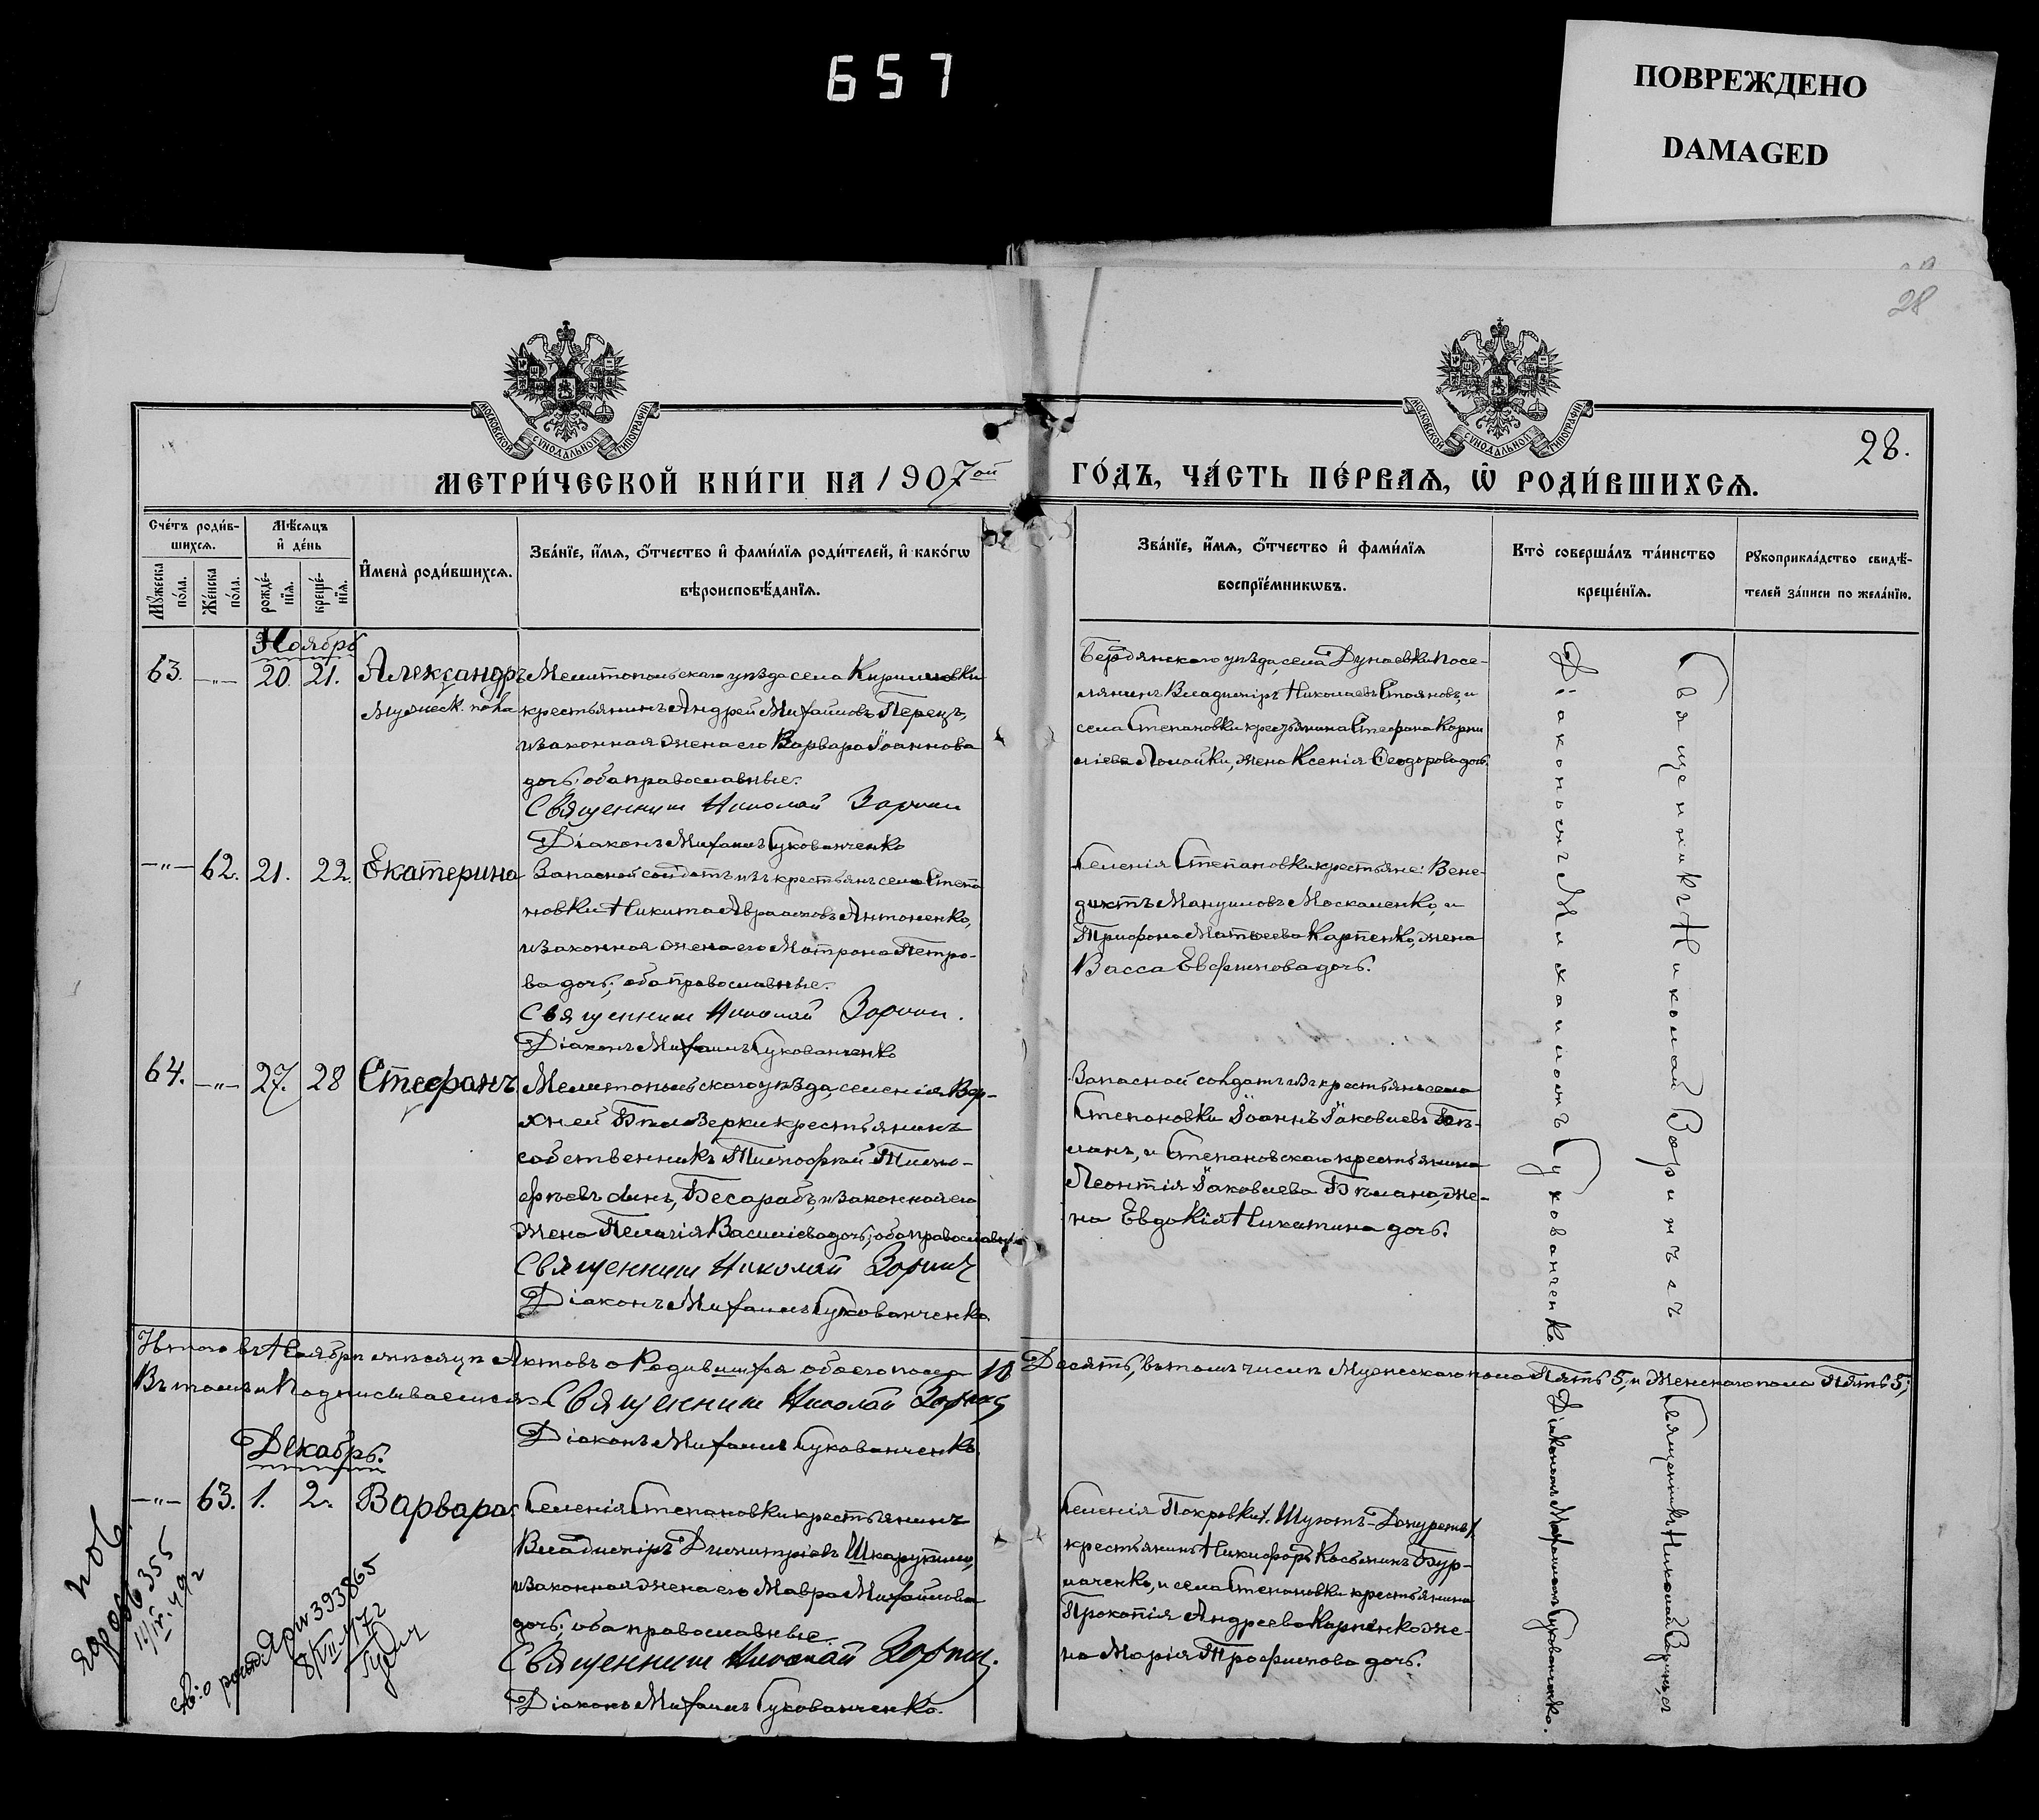 657
ПОВРЕЖДЕНО
DAMAGED
28
МОСКОВСКОЙ СѴНОДАЛЬНОЙ ТИПОГРАФІИ
МОСКОВСКОЙ СѴНОДАЛЬНОЙ ТИПОГРАФІИ
28.
МЕТРИ́ЧЕСКОЙ КНИ́ГИ НА 1907ой
ГО́ДЪ, ЧА́СТЬ ПЕ́РВАѦ, Ѿ РОДИ́ВШИХСѦ.
Сче́тъ роди́в-
шихсѧ.
Мꙋ́жеска по́ла.
Же́нска по́ла.
Мѣ́сѧцъ
и҆ де́нь
рожде́-
нїѧ.
креще́-
нїѧ.
И҆мена̀ роди́вшихсѧ.
Зва́нїе, и҆́мѧ, ѻ҆́тчество и҆ фами́лїѧ роди́телей, и҆ како́гѡ
вѣроисповѣ́данїѧ.
Зва́нїе, и҆́мѧ, ѻ҆́тчество и҆ фами́лїѧ
воспрїе́мникѡвъ.
Кто̀ соверша́лъ та́инство
креще́нїѧ.
Рꙋкоприкла́дство свидѣ́-
телей за́писи по жела́нїю.
Ноябрь
63. —"— 20. 21. Александръ
Мужеск. пола
Мелитопольскаго уѣзда села Кирилловки
крестьянинъ Андрей Михайловъ Перецъ,
и законная жена его Варвара Іоаннова
дочь; оба православные.
Священник Николай Зорин
Діаконъ Михаилъ Суковатченко
Бердянскаго уѣзда, села Дунаевки посе-
лянинъ Владиміръ Николаевъ Стояновъ, и
села Степановки крестьянина Стефана Корни
ліева Ломайки, жена Ксенія Ѳеодорова дочь.
—"— 62. 21. 22. Екатерина
Запасной солдатъ изъ крестьянъ села Степа
новки Никита Авраамовъ Антоненко,
и законная жена его Матрона Петро-
ва дочь; оба православные.
Священник Николай Зорин.
Діаконъ Михаилъ Суковатченко
Селенія Степановки крестьяне: Вене-
диктъ Мануиловъ Москаленко, и
Трифона Матвеева Карпенко, жена
Васса Евфимова дочь.
64. —"— 27. 28 Стефанъ
Мелитопольскаго уѣзда, селенія Вер-
хней Бѣлозерки крестьянинъ
собственникъ Тимофей Тимо-
фѣевъ сынъ, Бесарабъ, и законная его
жена Пелагія Василіева дочь; оба православные
Священник Николай Зорин
Діаконъ Михаилъ Суковатченко.
Запасной солдатъ изъ крестьянъ села
Степановки Іоаннъ Іаковлевъ Бѣ-
ланъ, и Степановскаго крестьянина
Леонтія Іаковлева Бѣлана, же-
на Евдокія Никитина дочь.
Священникъ Николай Зоринъ съ
Діакономъ Михаиломъ Суковатченко.
Итого въ Ноябрѣ мѣсяцѣ Актовъ о Родившихся обоего пола 10 Десять, въ томъ числѣ Мужескаго пола Пять 5, и Женскаго пола Пять 5;
Въ томъ и Подписываемся: Священник Николай Зорин
Діаконъ Михаилъ Суковатченко.
Декабрь.
—"— 63. 1. 2. Варвара.
Селенія Степановки крестьянинъ
Владиміръ Димитріевъ Шкарупило,
и законная жена его Мавра Михайлова
дочь; оба православные.
Священник Николай Зорин.
Діаконъ Михаилъ Суковатченко.
Селенія Покровки
крестьянинъ Никифоръ Косьминъ Бур-
лаченко, и села Степановки крестьянина
Прокопія Андреева Карпенко же-
на Марія Трофимова дочь.
Священникъ Николай Зоринъ съ
Діакономъ Михаиломъ Суковатченко.
пов.
393865